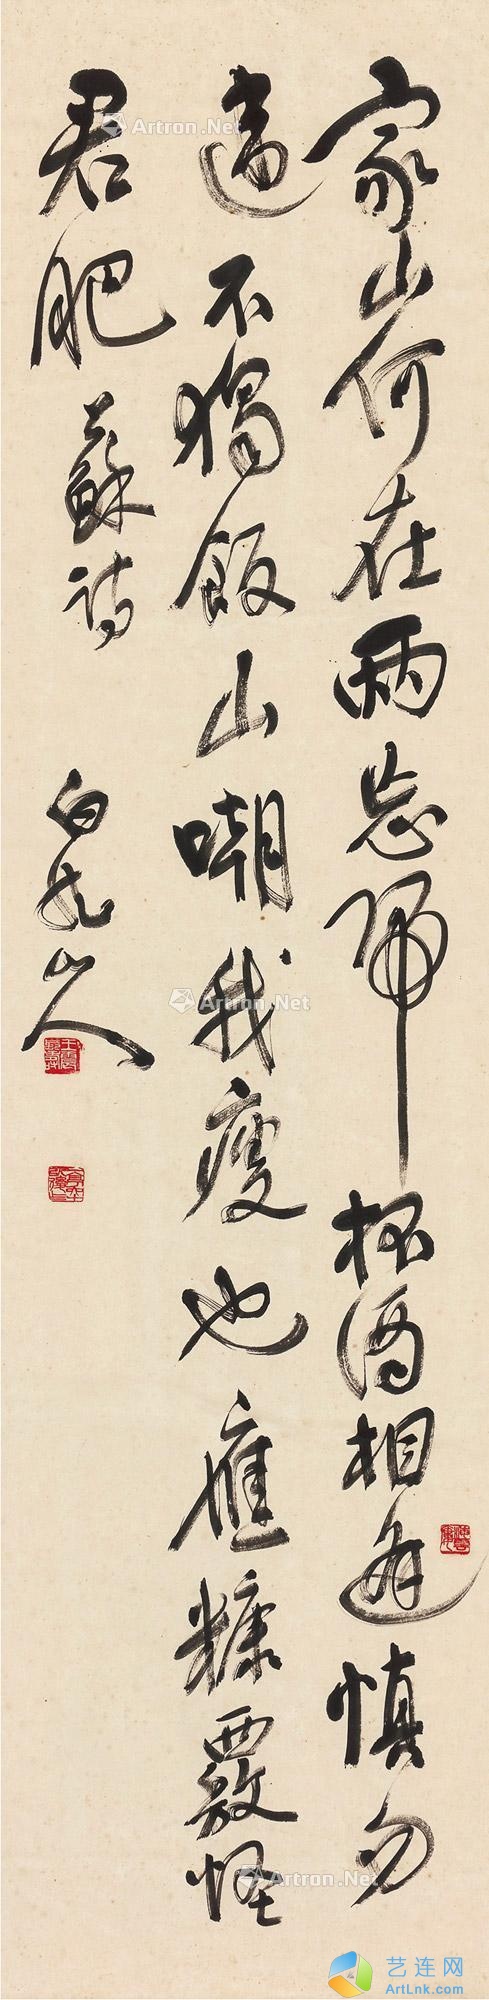 家山何在兩忘歸杯酒相逢慎勿
違不獨飯山嘲我瘦也應糠覈怪
君肥 蘇詩 白龍山人
王震
Artron.Net
Artron.Net
Artron.Net
Artron.Net
艺连网
ArtLnk.com